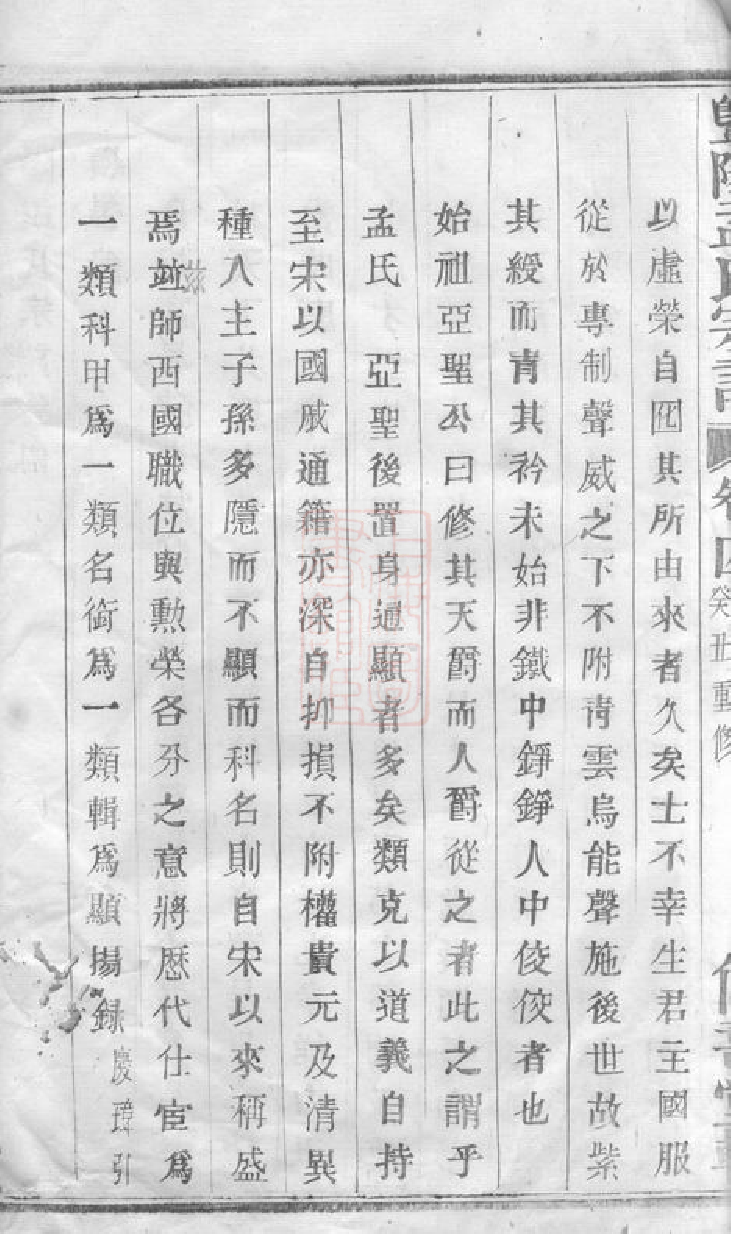 暨陽孟氏宗譜 卷四 癸丑重修
以虛榮自囮其所由來者久矣士不幸生君主國服
從於專制聲威之下不附青雲烏能聲施後世故紫
其綬而青其衿未始非鐵中錚錚人中佼佼者也
始祖亞聖公曰修其天爵而人爵從之者此之謂乎
孟氏 亞聖後置身通顯者多矣類克以道義自持
至宋以國戚通籍亦深自抑損不附權貴元及清異
種入主子孫多隱而不顯而科名則自宋以來稱盛
焉茲並師西國職位與勲榮各分之意將歷代仕宦爲
一類科甲爲一類名銜爲一類輯爲顯揚録 慶璋引